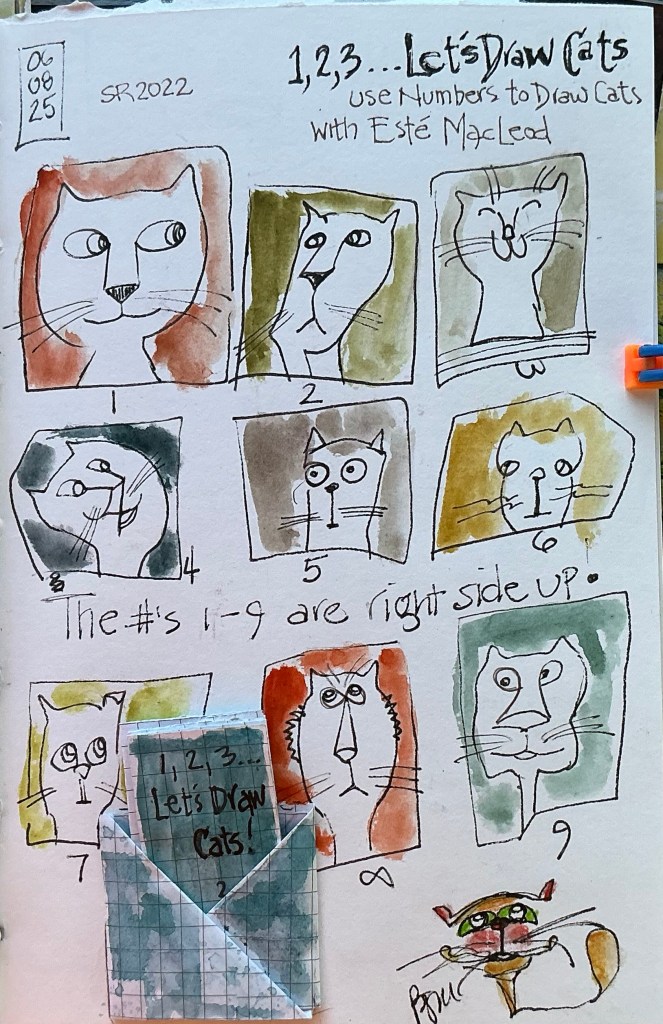 06
08
25
SR2022
1,2,3...Let's Draw Cats
use Numbers to Draw Cats
with Esté MacLeod
1
2
3
4
5
6
The #'s 1-9 are right side up.
7
8
9
1, 2, 3...
Let's Draw
Cats!
2